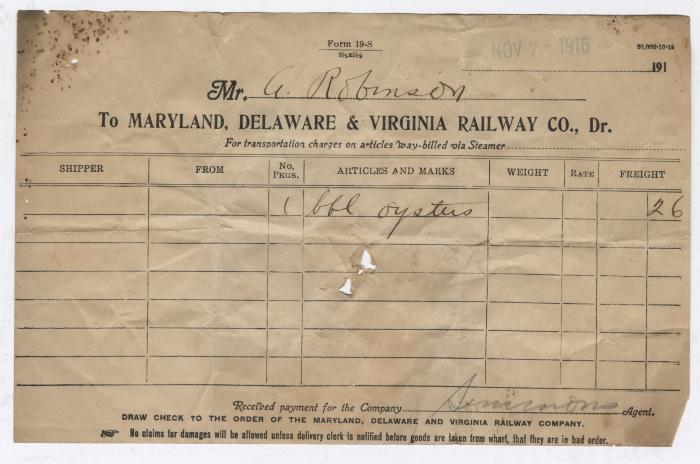 Form 19-S
5½x8½
NOV 7 - 1916
50,000-10-15
191
Mr. A. Robinson
To MARYLAND, DELAWARE & VIRGINIA RAILWAY CO., Dr.
For transportation charges on articles way-billed via Steamer
SHIPPER FROM No. PKGS. ARTICLES AND MARKS WEIGHT RATE FREIGHT
1 bbl oysters 26
Received payment for the Company Simmons Agent.
DRAW CHECK TO THE ORDER OF THE MARYLAND, DELAWARE AND VIRGINIA RAILWAY COMPANY.
No claims for damages will be allowed unless delivery clerk is notified before goods are taken from wharf, that they are in bad order.